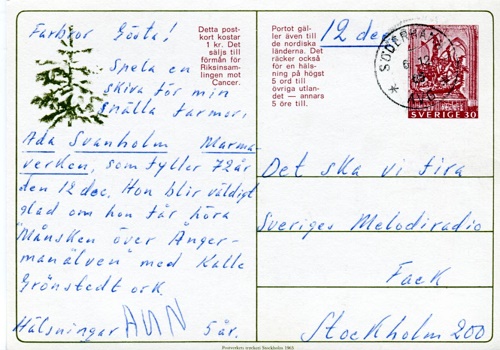 Farbror Gösta!
Spela en
skiva för min
snälla farmor,
Ada Svanholm Marma-
verken, som fyller 72 år
den 12 dec. Hon blir väldigt
glad om hon får höra
"Månsken över Ånger-
manälven" med Kalle
Grönstedt ork.
Hälsningar ANN 5 år.
Detta post-
kort kostar
1 kr. Det
säljs till
förmån för
Riksinsam-
lingen mot
Cancer.
Portot gäl-
ler även till
de nordiska
länderna. Det
räcker också
för en häls-
ning på högst
5 ord till
övriga utlan-
det — annars
5 öre till.
12 dec
SÖDERHA
SVERIGE 30
Det ska vi fira
Sveriges Melodiradio
Fack
Stockholm 200
Postverkets tryckeri Stockholm 1965